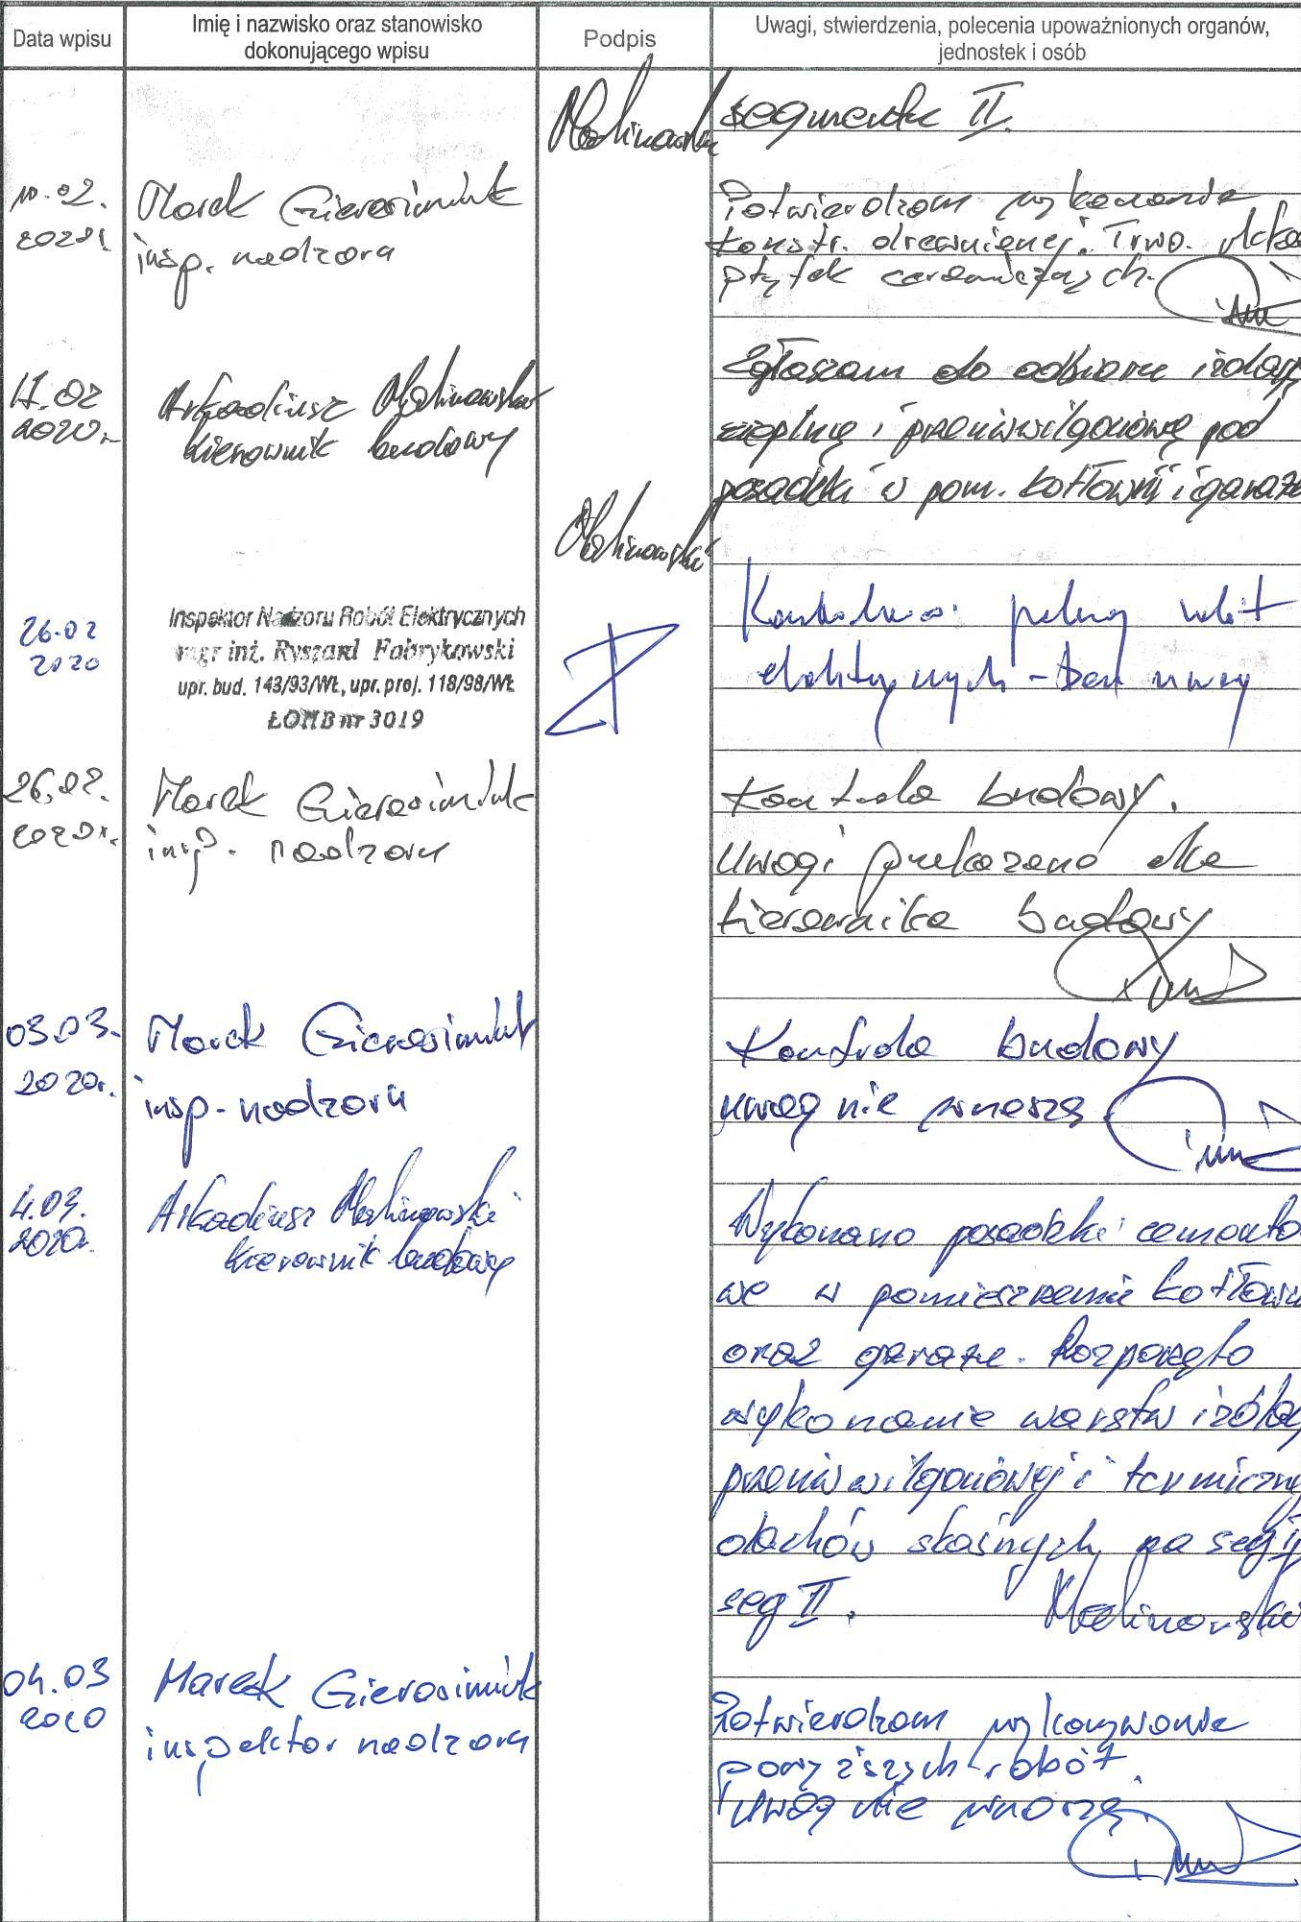 Data wpisu
Imię i nazwisko oraz stanowisko
dokonującego wpisu
Podpis
Uwagi, stwierdzenia, polecenia upoważnionych organów,
jednostek i osób
Malinowski
segmentu II.
10.02.
2020r.
Marek Gierasimiuk
insp. nadzoru
Potwierdzam wykonanie
konstr. drewnianej. Trwa
płytek ceramicznych.
17.02
2020r.
Arkadiusz Malinowski
kierownik budowy
Zgłaszam do odbioru izolację
cieplną i przeciwwilgociową pod
posadzki w pom. kotłowni i garażu
Malinowski
26.02
2020
Inspektor Nadzoru Robót Elektrycznych
mgr inż. Ryszard Fabrykowski
upr. bud. 143/93/WŁ, upr. proj. 118/98/WŁ
ŁOIIB nr 3019
robót
elektrycznych - bez uwag
26.02.
2020r.
Marek Gierasimiuk
insp. nadzoru
Kontrola budowy.
Uwagi przekazano dla
kierownika budowy
03.03.
2020r.
Marek Gierasimiuk
insp. nadzoru
Kontrola budowy
uwag nie wnoszę
4.03.
2020r.
Arkadiusz Malinowski
kierownik budowy
Wykonano posadzki cemento
we w pomieszczeniu kotłowni
oraz garażu. Rozpoczęto
wykonanie warstw izolacji
przeciwwilgociowej i termicznej
dachów skośnych na seg I i
seg II. Malinowski
04.03
2020
Marek Gierasimiuk
inspektor nadzoru
Potwierdzam wykonywanie
powyższych robót.
Uwag nie wnoszę